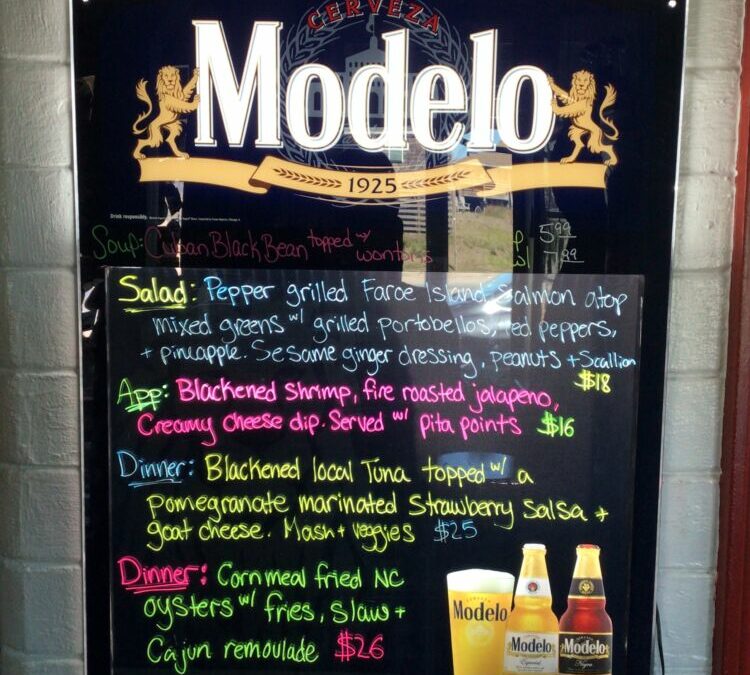 CERVEZA
Modelo
1925
Drink responsibly.
Soup: Cuban Black Bean topped w/ wontons 5.99
7.99
Salad: Pepper grilled Faroe Island Salmon atop
mixed greens w/ grilled portobellos, red peppers,
+ pineapple. Sesame ginger dressing, peanuts + Scallion
$18
App: Blackened Shrimp, fire roasted jalapeno,
Creamy cheese dip. Served w/ pita points $16
Dinner: Blackened local Tuna topped w/ a
pomegranate marinated Strawberry Salsa +
goat cheese. Mash + veggies $25
Dinner: Cornmeal fried NC
oysters w/ fries, slaw +
Cajun remoulade $26
CERVEZA
Modelo
Modelo
Especial
Modelo
Negra